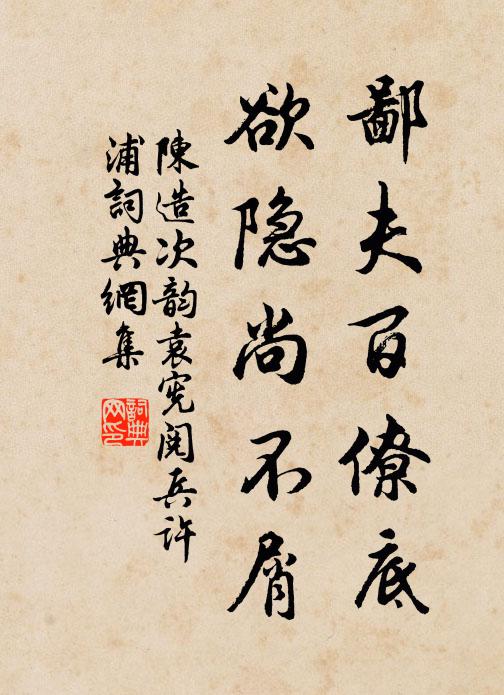 鄙夫百僚底
欲隐尚不屑
陳造次韵袁宪阅兵许
浦詞典網集
詞典
网印